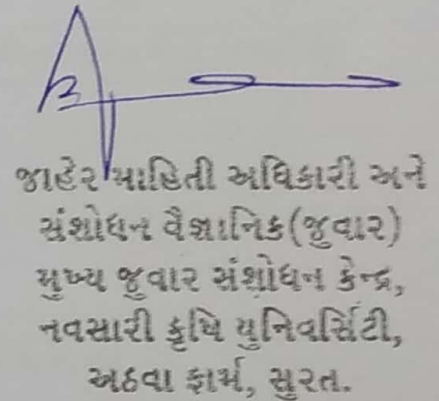 જાહેર માહિતી અધિકારી અને
સંશોધન વૈજ્ઞાનિક(જુવાર)
મુખ્ય જુવાર સંશોધન કેન્દ્ર,
નવસારી કૃષિ યુનિવર્સિટી,
અઠવા ફાર્મ, સુરત.